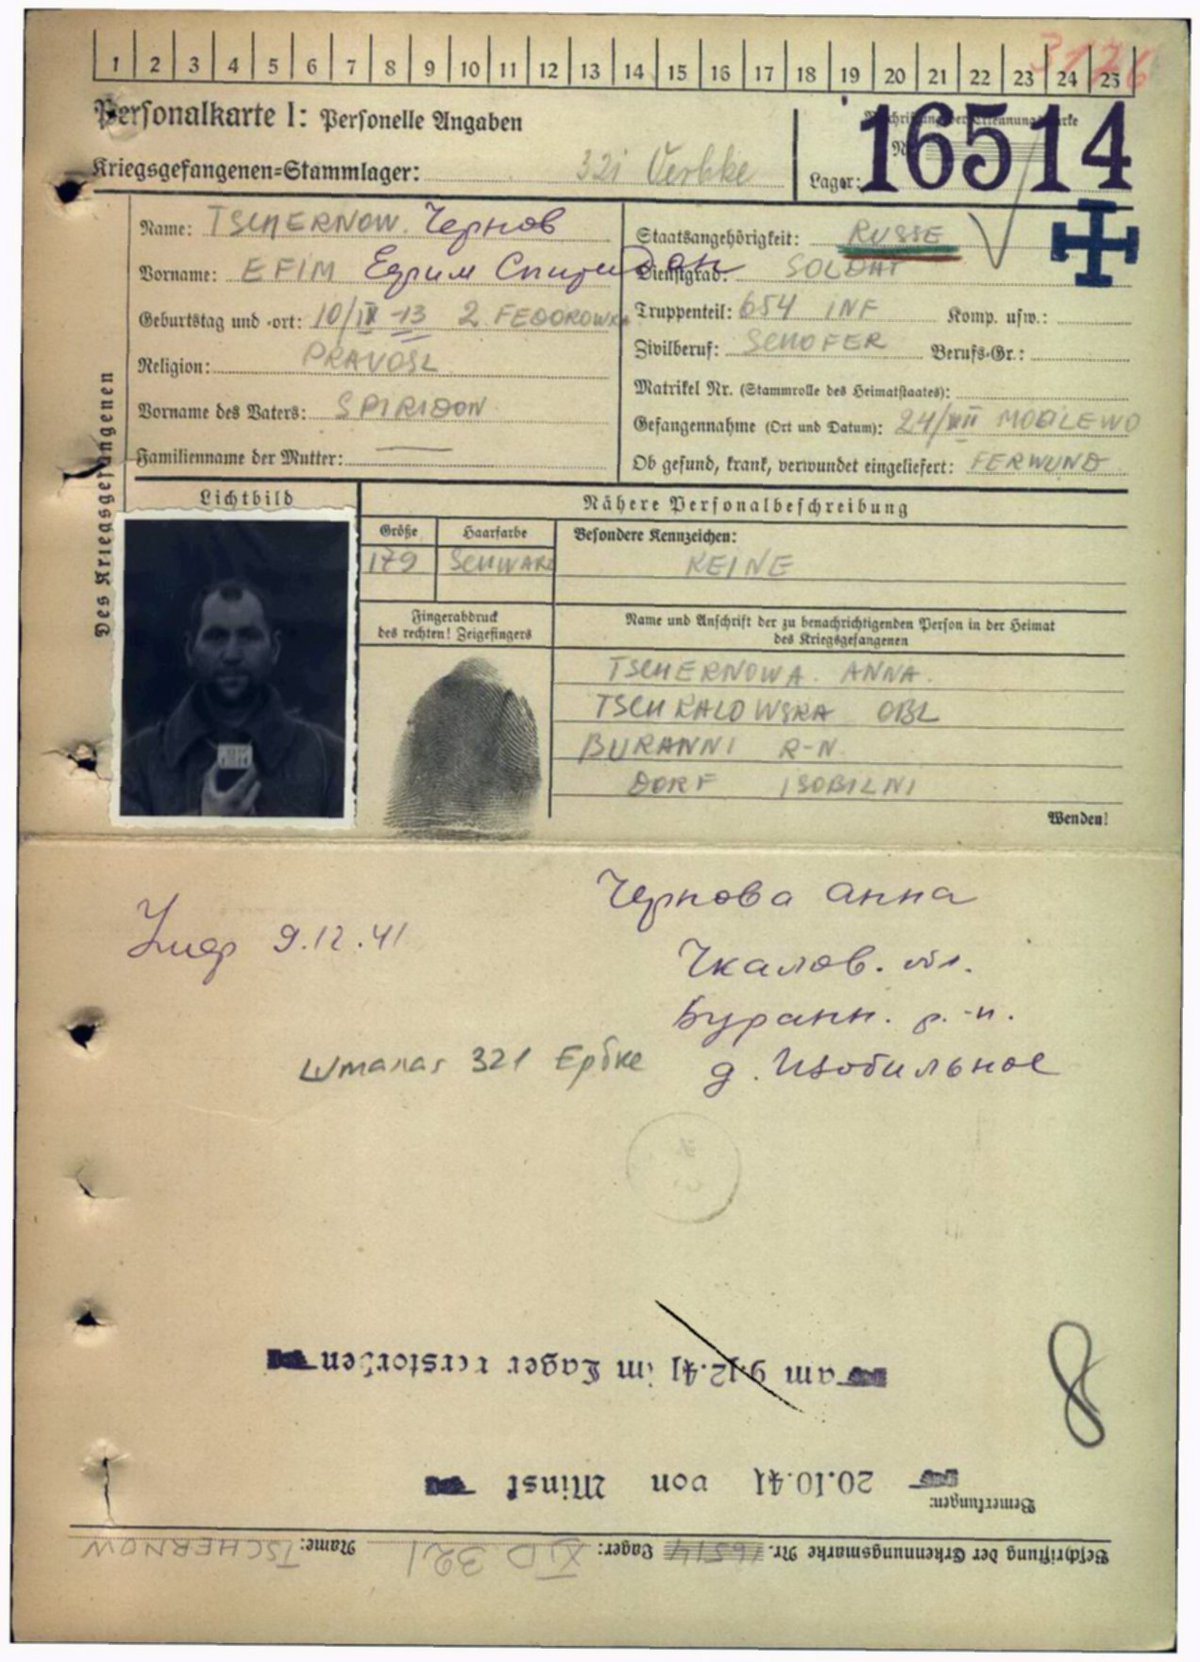 3176
1 2 3 4 5 6 7 8 9 10 11 12 13 14 15 16 17 18 19 20 21 22 23 24 25
Personalkarte I: Personelle Angaben
Kriegsgefangenen=Stammlager: 321 Oerbke
Lager: 16514
Des Kriegsgefangenen
Name: TSCHERNOW. Чернов
Vorname: EFIM Ефим Спиридон
Geburtstag und -ort: 10/IX -13 2 FEDOROWKA
Religion: PRAVOSL
Vorname des Vaters: SPIRIDON
Familienname der Mutter: —
Staatsangehörigkeit: RUSSE
Dienstgrad: SOLDAT
Truppenteil: 654 INF Komp. usw.:
Zivilberuf: SCHOFER Berufs-Gr.:
Matrikel Nr. (Stammrolle des Heimatstaates):
Gefangennahme (Ort und Datum): 24/VII MOGILEWO
Ob gesund, krank, verwundet eingeliefert: FERWUND
Lichtbild
Nähere Personalbeschreibung
Größe Haarfarbe Besondere Kennzeichen:
179 SCHWARZ KEINE
Fingerabdruck
des rechten! Zeigefingers
Name und Anschrift der zu benachrichtigenden Person in der Heimat
des Kriegsgefangenen
TSCHERNOWA. ANNA.
TSCHKALOWSKA OBL
BURANNI R-N
DORF ISOBILNI
Wenden!
Чернова Анна
Умер 9.12.41
Чкалов. обл.
Буранн. р-н.
Шталаг 321 Ербке д. Изобильное
am 9.12.41 im Lager verstorben
8
20.10.41 von Minsk
Bemerkungen:
Beschriftung der Erkennungsmarke Nr. 16514 Lager: XI D 321 Name: TSCHERNOW